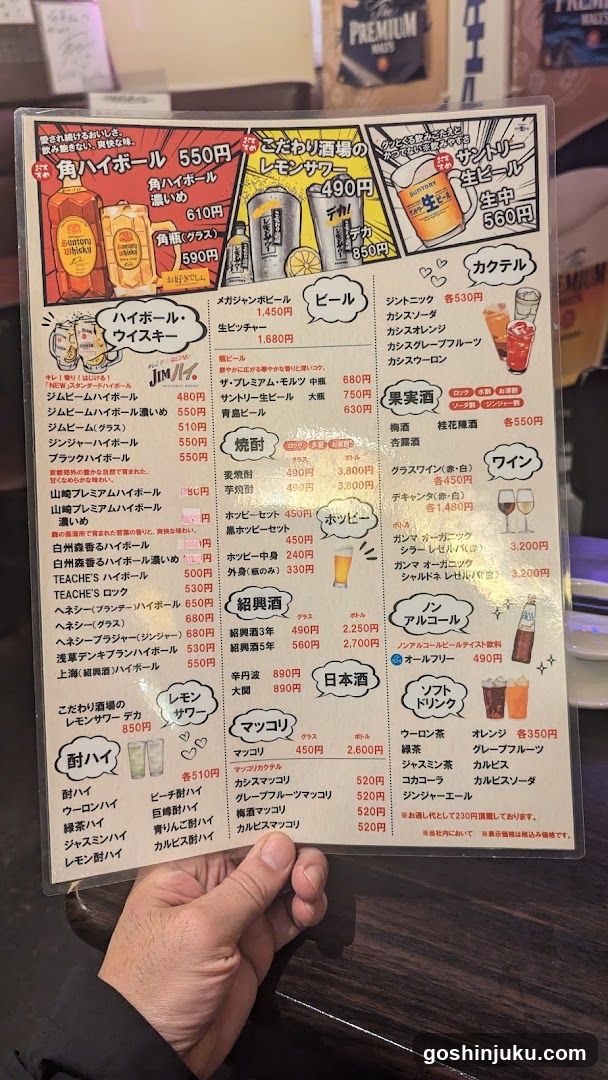 The
PREMIUM
MALT'S
愛され続けるおいしさ。
飲み飽きない、爽快な味。
おすすめ
角ハイボール 550円
角ハイボール
濃いめ
610円
角瓶(グラス)
590円
お好きでしょ。
Suntory
Whisky
こだわり酒場の
レモンサワー
490円
デカ!
デカ
850円
おすすめ
サントリー
生ビール
生中
560円
SUNTORY
生ビール
ハイボール・
ウイスキー
キレ!香り!はじける!
「NEW」スタンダードハイボール
JIMハイ。
ジムビームハイボール 480円
ジムビームハイボール濃いめ 550円
ジムビーム(グラス) 510円
ジンジャーハイボール 550円
ブラックハイボール 550円
京都郊外の豊かな自然で育まれた、
甘くなめらかな味わい。
山崎プレミアムハイボール
山崎プレミアムハイボール
濃いめ 円
森の蒸溜所で育まれた若葉の香りと、爽快な味わい。
白州森香るハイボール 円
白州森香るハイボール濃いめ 円
TEACHE'S ハイボール 500円
TEACHE'S ロック 530円
ヘネシー(ブランデー)ハイボール 650円
ヘネシー(グラス) 680円
ヘネシーブラジャー(ジンジャー) 680円
浅草デンキブランハイボール 530円
上海(紹興酒)ハイボール 550円
レモン
サワー
こだわり酒場の
レモンサワー デカ
850円
酎ハイ
各510円
酎ハイ
ウーロンハイ
緑茶ハイ
ジャスミンハイ
レモン酎ハイ
ピーチ酎ハイ
巨峰酎ハイ
青りんご酎ハイ
カルピス酎ハイ
ビール
メガジャンボビール
1,450円
生ピッチャー
1,680円
瓶ビール
鮮やかに広がる華やかな香りと深いコク。
ザ・プレミアム・モルツ 中瓶 680円
サントリー生ビール 大瓶 750円
青島ビール 630円
焼酎
ロック 水割 お湯割
グラス ボトル
麦焼酎 490円 3,800円
芋焼酎 490円 3,800円
ホッピー
ホッピーセット 450円
黒ホッピーセット
450円
ホッピー中身 240円
外身(瓶のみ) 330円
紹興酒
グラス ボトル
紹興酒3年 490円 2,250円
紹興酒5年 560円 2,700円
日本酒
辛丹波 890円
大関 890円
マッコリ
グラス ボトル
マッコリ 450円 2,600円
マッコリカクテル
カシスマッコリ 520円
グレープフルーツマッコリ 520円
梅酒マッコリ 520円
カルピスマッコリ 520円
カクテル
ジントニック 各530円
カシスソーダ
カシスオレンジ
カシスグレープフルーツ
カシスウーロン
果実酒
ロック 水割 お湯割
ソーダ割 ジンジャー割
梅酒 桂花陳酒 各550円
杏露酒
ワイン
グラスワイン(赤・白)
各450円
デキャンタ(赤・白)
各1,480円
ボトル
ガンマ オーガニック
シラー レゼルバ(赤) 3,200円
ガンマ オーガニック
シャルドネ レゼルバ(白) 3,200円
ノン
アルコール
ノンアルコールビールテイスト飲料
オールフリー 490円
ソフト
ドリンク
ウーロン茶 オレンジ 各350円
緑茶 グレープフルーツ
ジャスミン茶 カルピス
コカコーラ カルピスソーダ
ジンジャーエール
※お通し代として230円頂戴しております。
※当社内において ※表示価格は税込み価格です。
goshinjuku.com